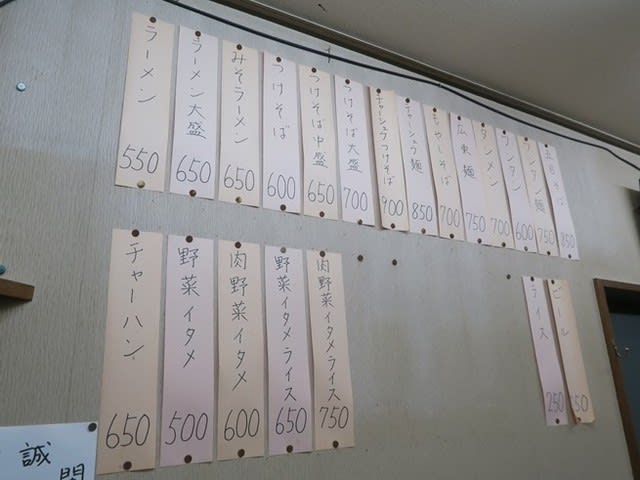 ラーメン 550
ラーメン大盛 650
みそラーメン 650
つけそば 600
つけそば中盛 650
つけそば大盛 700
チャーシューつけそば 900
チャーシュー麺 850
もやしそば 700
広東麺 750
タンメン 700
ワンタン 600
ワンタン麺 750
五目そば 850
チャーハン 650
野菜イタメ 500
肉野菜イタメ 600
野菜イタメライス 650
肉野菜イタメライス 750
ライス 250
ビール
誠